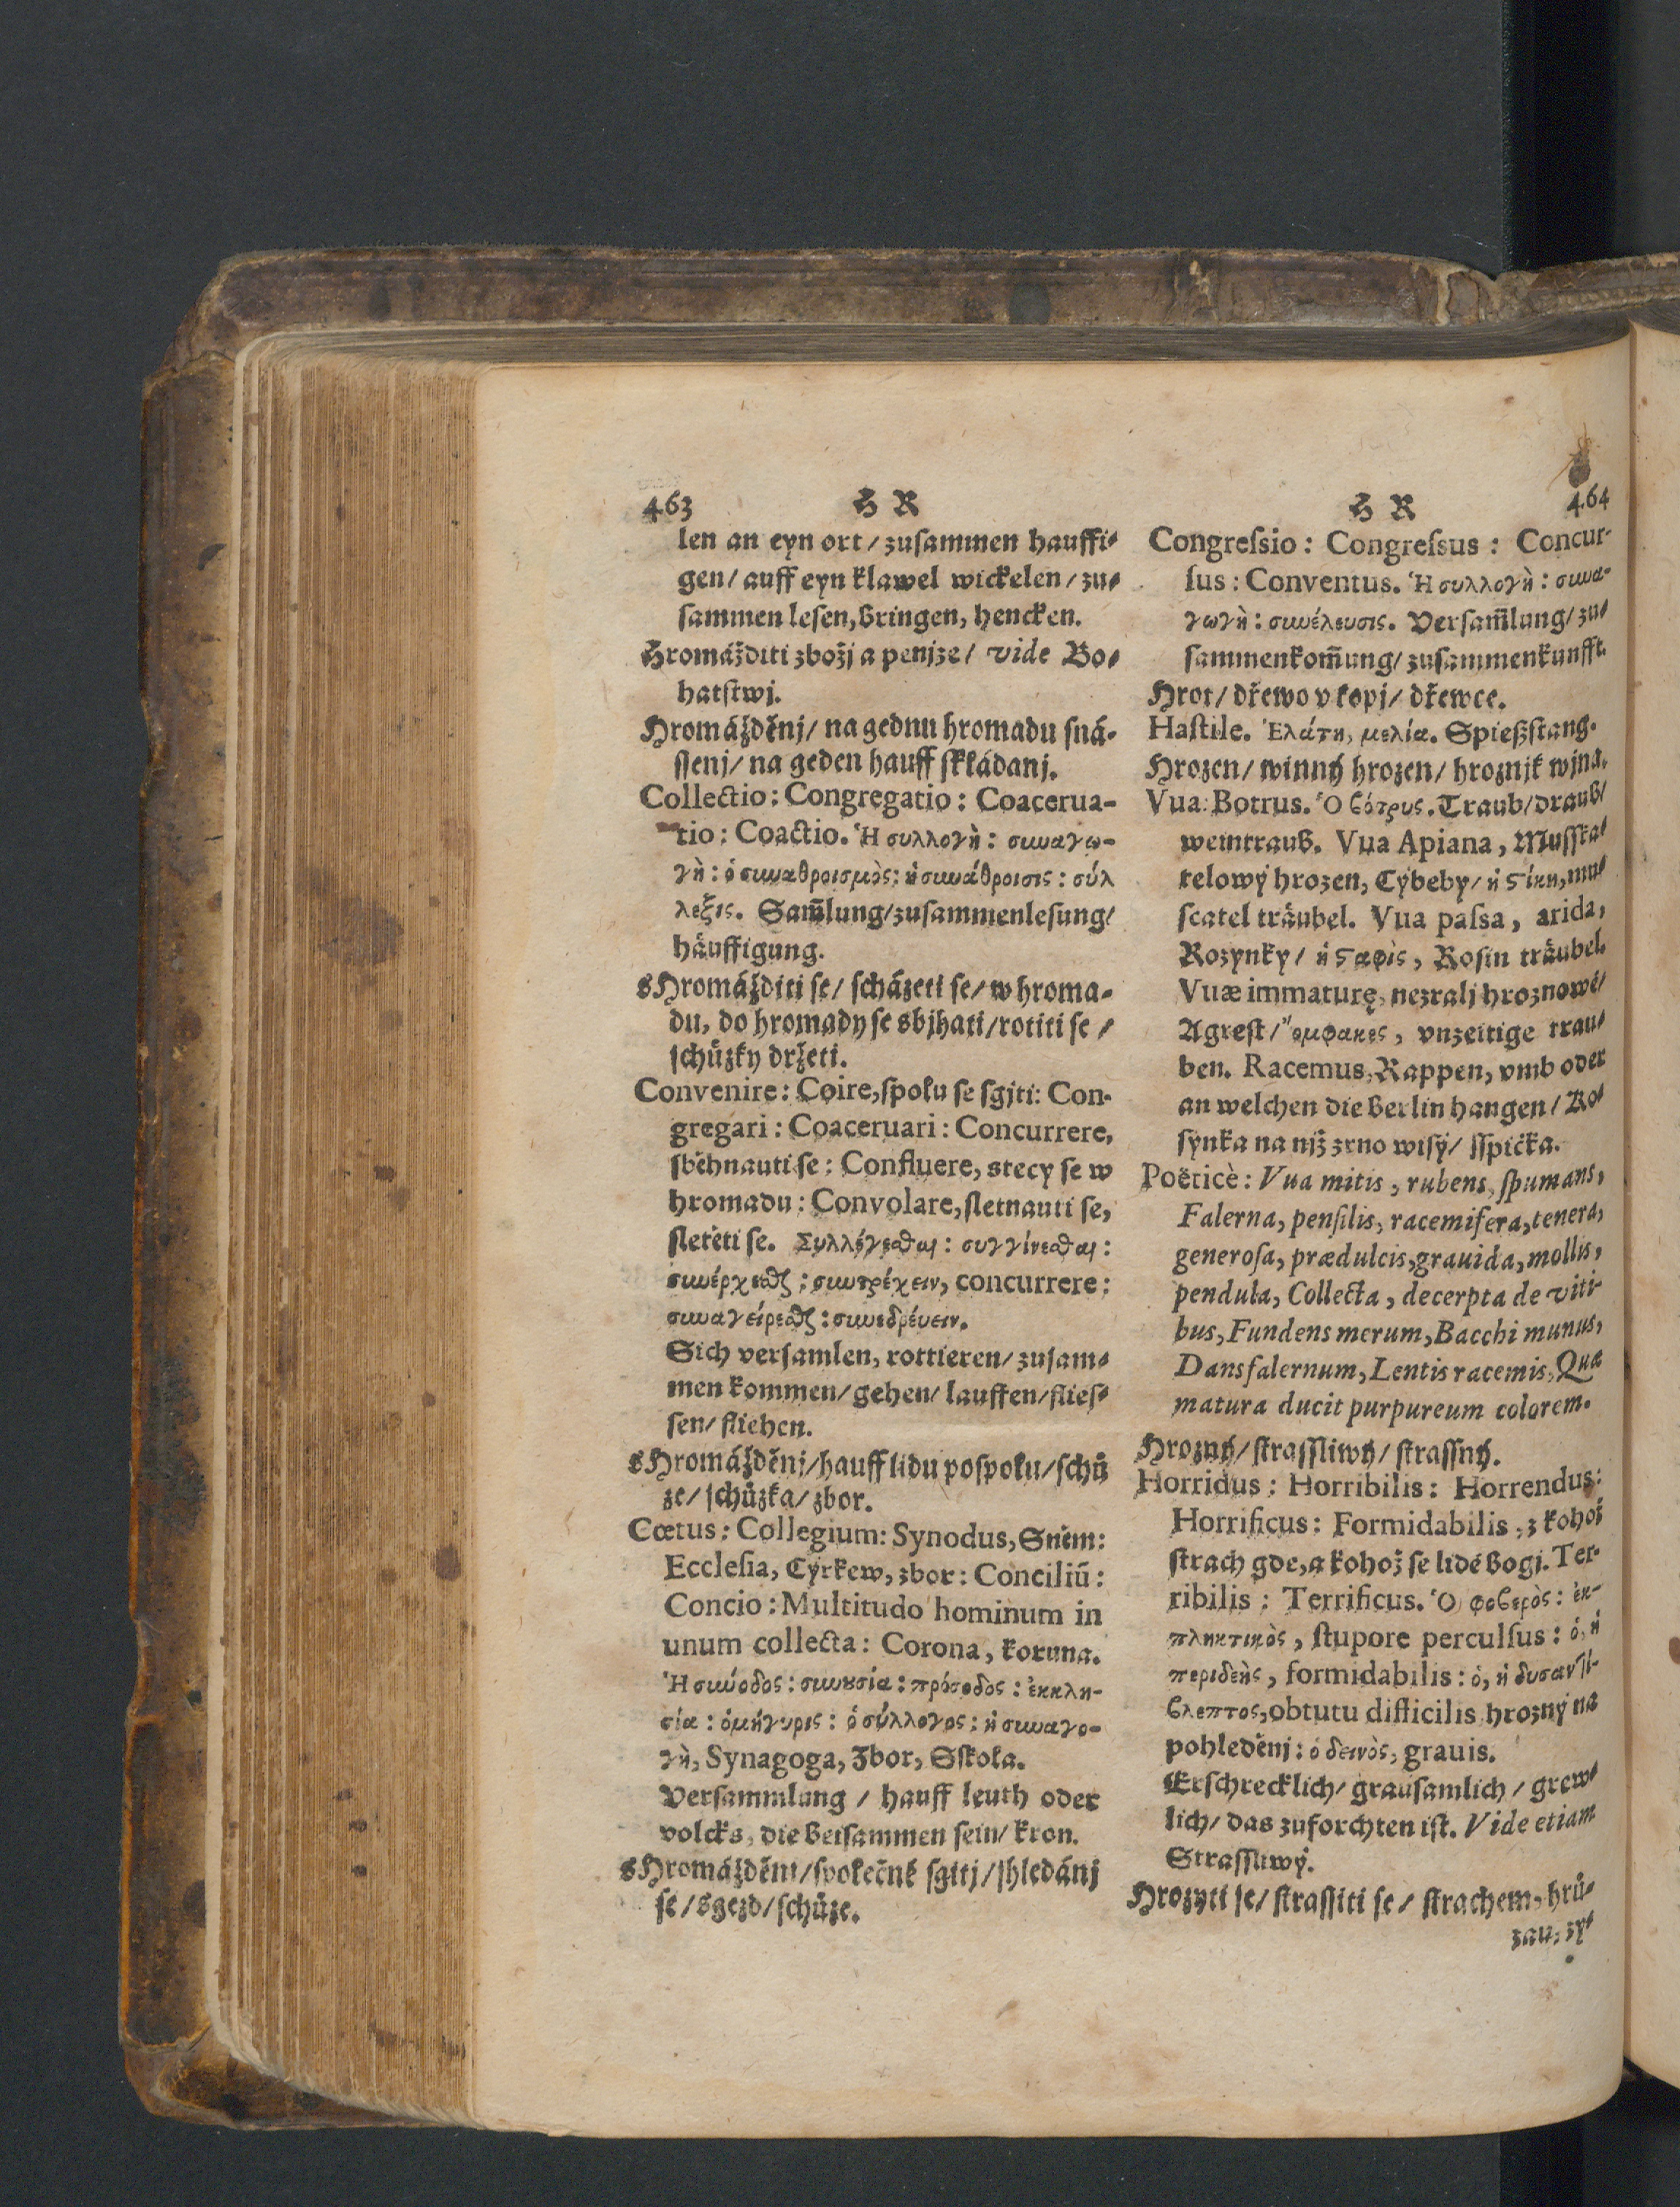 463 H R
len an eyn ort / zusammen hauffi⸗
gen / auff eyn klawel wickelen / zu⸗
sammen lesen, bringen, hencken.
Hromážditi zbožj a penjze / vide Bo⸗
hatstwj.
Hromážděnj / na gednu hromadu sná⸗
ssenj / na geden hauff skládanj.
Collectio: Congregatio: Coacerua-
tio: Coactio. Ἡ συλλογὴ: συναγω-
γὴ: ὁ συναθροισμὸς: ἡ συνάθροισις: σύλ
λεξις. Sam̃lung / zusammenlesung /
häuffigung.
sHromážditi se / scházeti se / w hroma⸗
du, do hromady se sbjhati / rotiti se /
schůzky držeti.
Convenire: Coire, spolu se sgjti: Con-
gregari: Coaceruari: Concurrere,
sběhnauti se: Confluere, stecy se w
hromadu: Convolare, sletnauti se,
sletěti se. Συλλέγεσθαι: συγγίνεσθαι:
συνέρχεσθαι: συντρέχειν, concurrere:
συναγείρεσθαι: συνεδρέυειν.
Sich versamlen, rottieren / zusam⸗
men kommen / gehen / lauffen / flies⸗
sen / fliehen.
sHromážděnj / hauff lidu pospolu / schů
ze / schůzka / zbor.
Cœtus: Collegium: Synodus, Sněm:
Ecclesia, Cýrkew, zbor: Conciliũ:
Concio: Multitudo hominum in
unum collecta: Corona, koruna.
Ἡ σύνοδος: συνουσία: πρόσοδος: ἐκκλη-
σία: ὁμήγυρις: ὁ σύλλογος: ἡ συναγο-
γὴ, Synagoga, Zbor, Sskola.
Versammlung / hauff leuth oder
volcks, die beisammen sein / kron.
sHromážděnj / společné sgitj / shledánj
se / sgezd / schůze.
H R 464
Congressio: Congressus: Concur-
sus: Conventus. Ἡ συλλογὴ: συνα-
γωγὴ: συνέλευσις. Versam̃lung / zu⸗
sammenkom̃ung / zusammenkunfft.
Hrot / dřewo v kopj / dřewce.
Hastile. Ἐλάτη, μελία. Spießstang.
Hrozen / winný hrozen / hroznjk wjna.
Vua: Botrus. Ὁ βότρυς. Traub / draub /
weintraub. Vua Apiana, Musska⸗
telowý hrozen, Cybeby / ἡ στίκη, mu⸗
scatel träubel. Vua passa, arida,
Rozynky / ἡ σταφὶς, Rosin träubel.
Vuæ immaturę, nezralj hroznowé /
Agrest / ὄμφακες, vnzeitige trau⸗
ben. Racemus, Rappen, vmb oder
an welchen die berlin hangen / Ro⸗
synka na njž zrno wisý / sspička.
Poëticè: Vua mitis, rubens, spumans,
Falerna, pensilis, racemifera, tenera,
generosa, prædulcis, grauida, mollis,
pendula, Collecta, decerpta de viti-
bus, Fundens merum, Bacchi munus,
Dans falernum, Lentis racemis, Quæ
matura ducit purpureum colorem.
Hrozný / strassliwý / strassný.
Horridus: Horribilis: Horrendus:
Horrificus: Formidabilis, z kohož
strach gde, a kohož se lidé bogj. Ter-
ribilis: Terrificus. Ὁ φοβερὸς: ἐκ-
πληκτικὸς, stupore perculsus: ὁ, ἡ
περιδεὴς, formidabilis: ὁ, ἡ δυσαντί-
βλεπτος, obtutu difficilis hrozný na
pohleděnj: ὁ δεινὸς, grauis.
Erschrecklich / grausamlich / grew⸗
lich / das zuforchten ist. Vide etiam
Strassliwý.
Hrozyti se / strassiti se / strachem, hrů⸗
zau, zy⸗